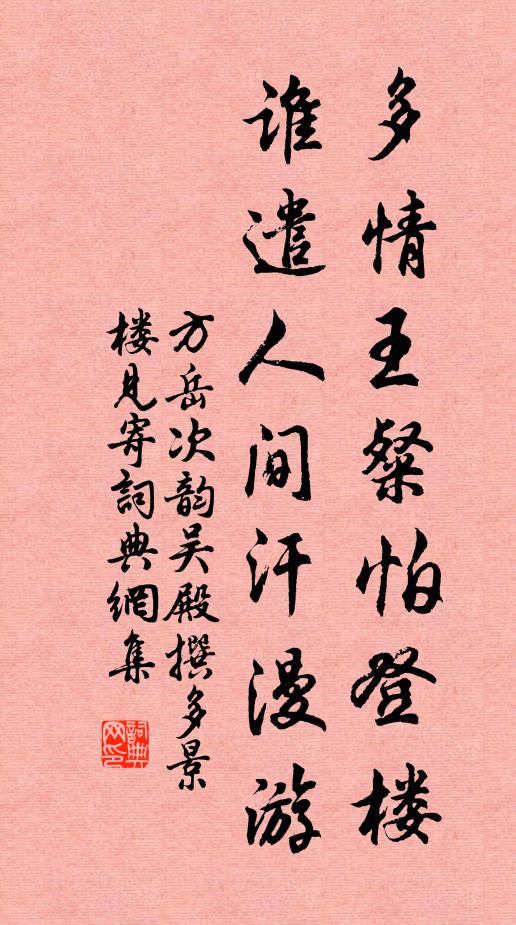 多情王粲怕登楼
谁遣人间汗漫游
方岳次韵吴殿撰多景
楼见寄詞典網集
詞典
网印